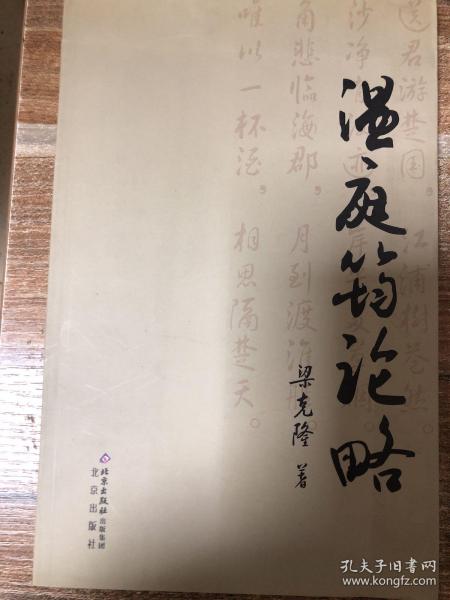 温庭筠论略
梁克隆 著
送君游楚国，江浦樹蒼然。
沙净
角悲临海郡，月到渡淮
唯以一杯酒，相思隔楚天。
北京出版社
出版集团
北京出版社
孔夫子旧书网
www.kongfz.com